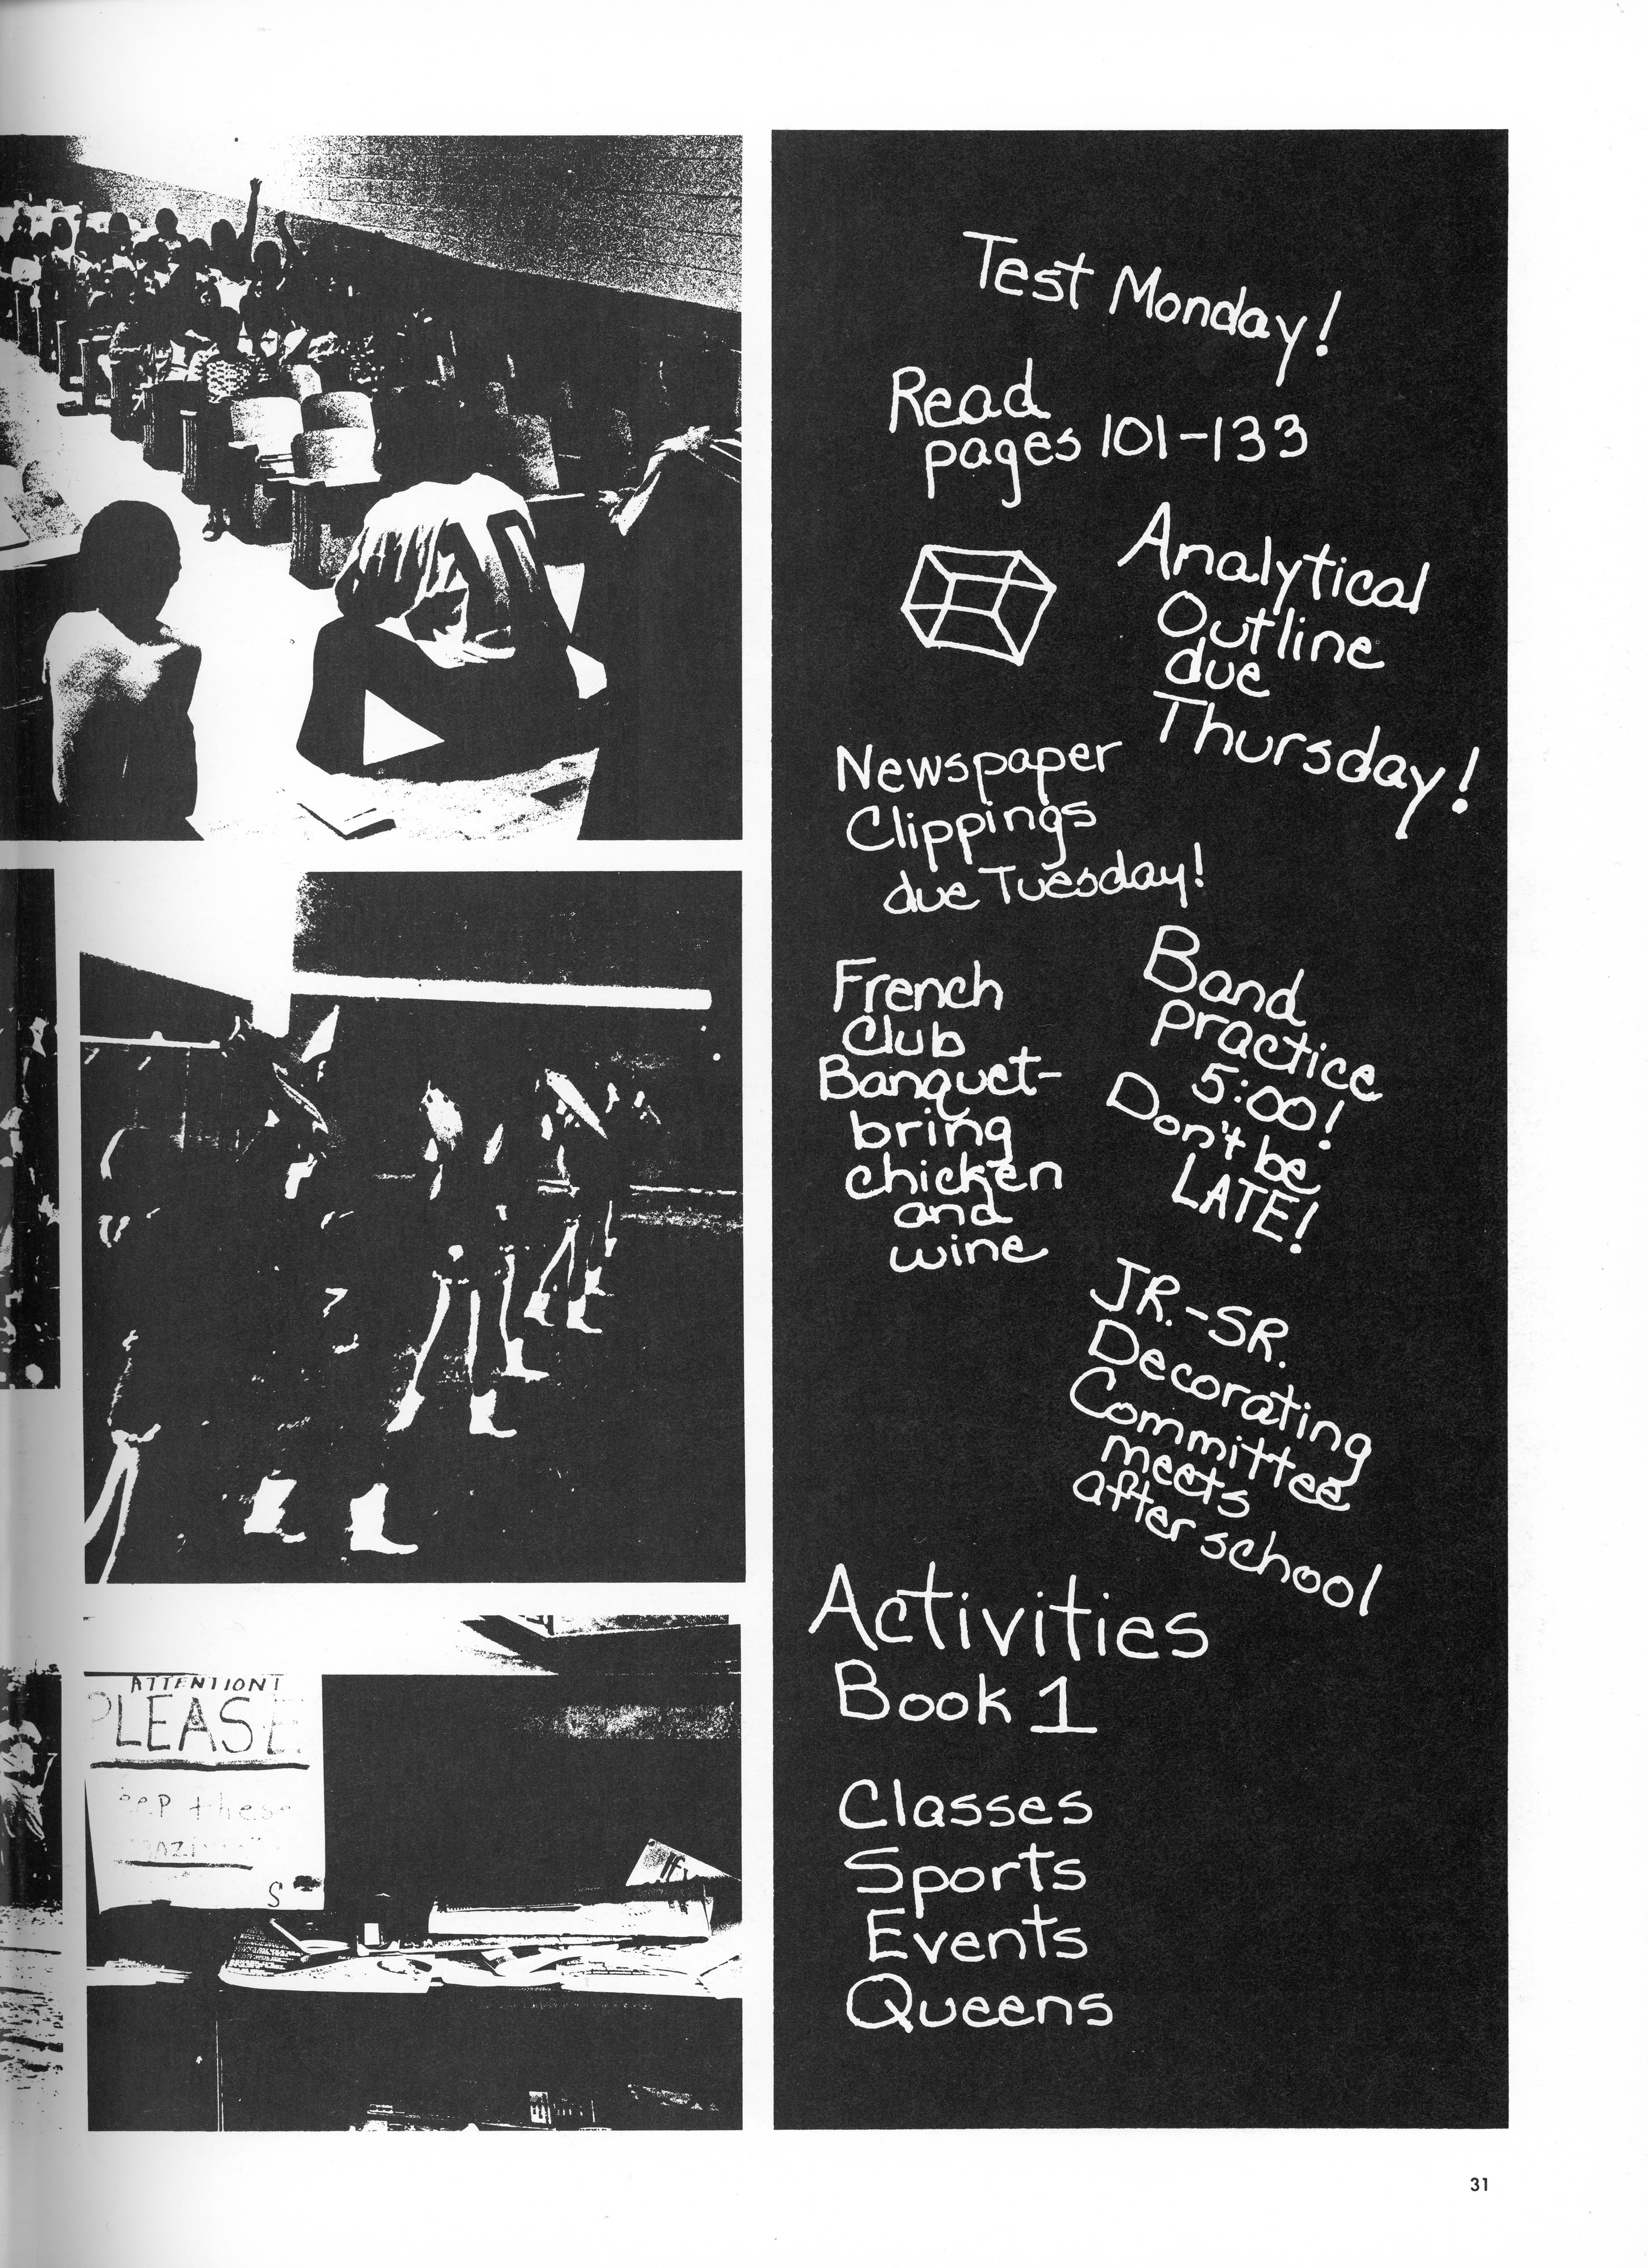 Test Monday!
Read
pages 101-133
Analytical
Outline
due
Thursday!
Newspaper
Clippings
due Tuesday!
Band
practice
5:00!
Don't be
LATE!
French
Club
Banquet-
bring
chicken
and
wine
JR.-SR.
Decorating
Committee
meets
after school
Activities
Book 1
Classes
Sports
Events
Queens
ATTENTION!
PLEASE
these
S
If
31